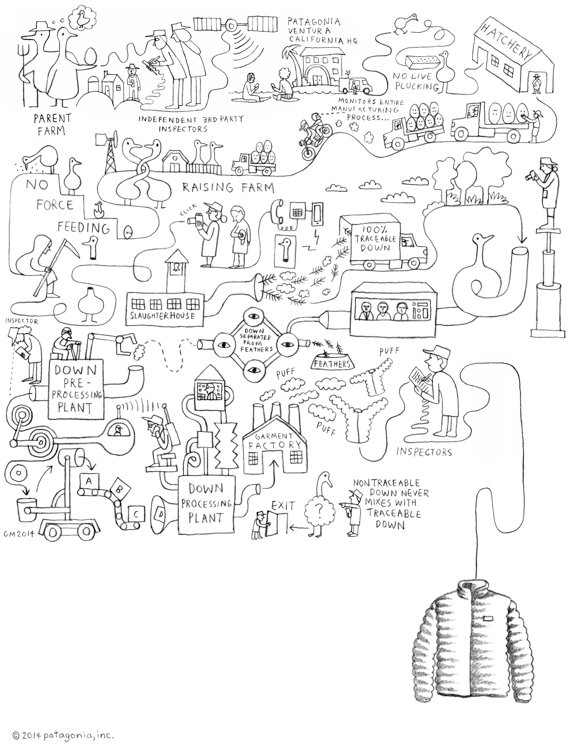 PATAGONIA
VENTURA
CALIFORNIA HQ
HATCHERY
NO LIVE
PLUCKING
PARENT
FARM
INDEPENDENT 3RD PARTY
INSPECTORS
MONITORS ENTIRE
MANUFACTURING
PROCESS...
NO
FORCE
FEEDING
RAISING FARM
CLICK
100%
TRACEABLE
DOWN
SLAUGHTERHOUSE
INSPECTOR
DOWN
SEPARATED
FROM
FEATHERS
FEATHERS
PUFF
PUFF
PUFF
DOWN
PRE-
PROCESSING
PLANT
INSPECTORS
GARMENT
FACTORY
A
B
C
D
DOWN
PROCESSING
PLANT
EXIT
?
NONTRACEABLE
DOWN NEVER
MIXES WITH
TRACEABLE
DOWN
GM2014
© 2014 patagonia, inc.